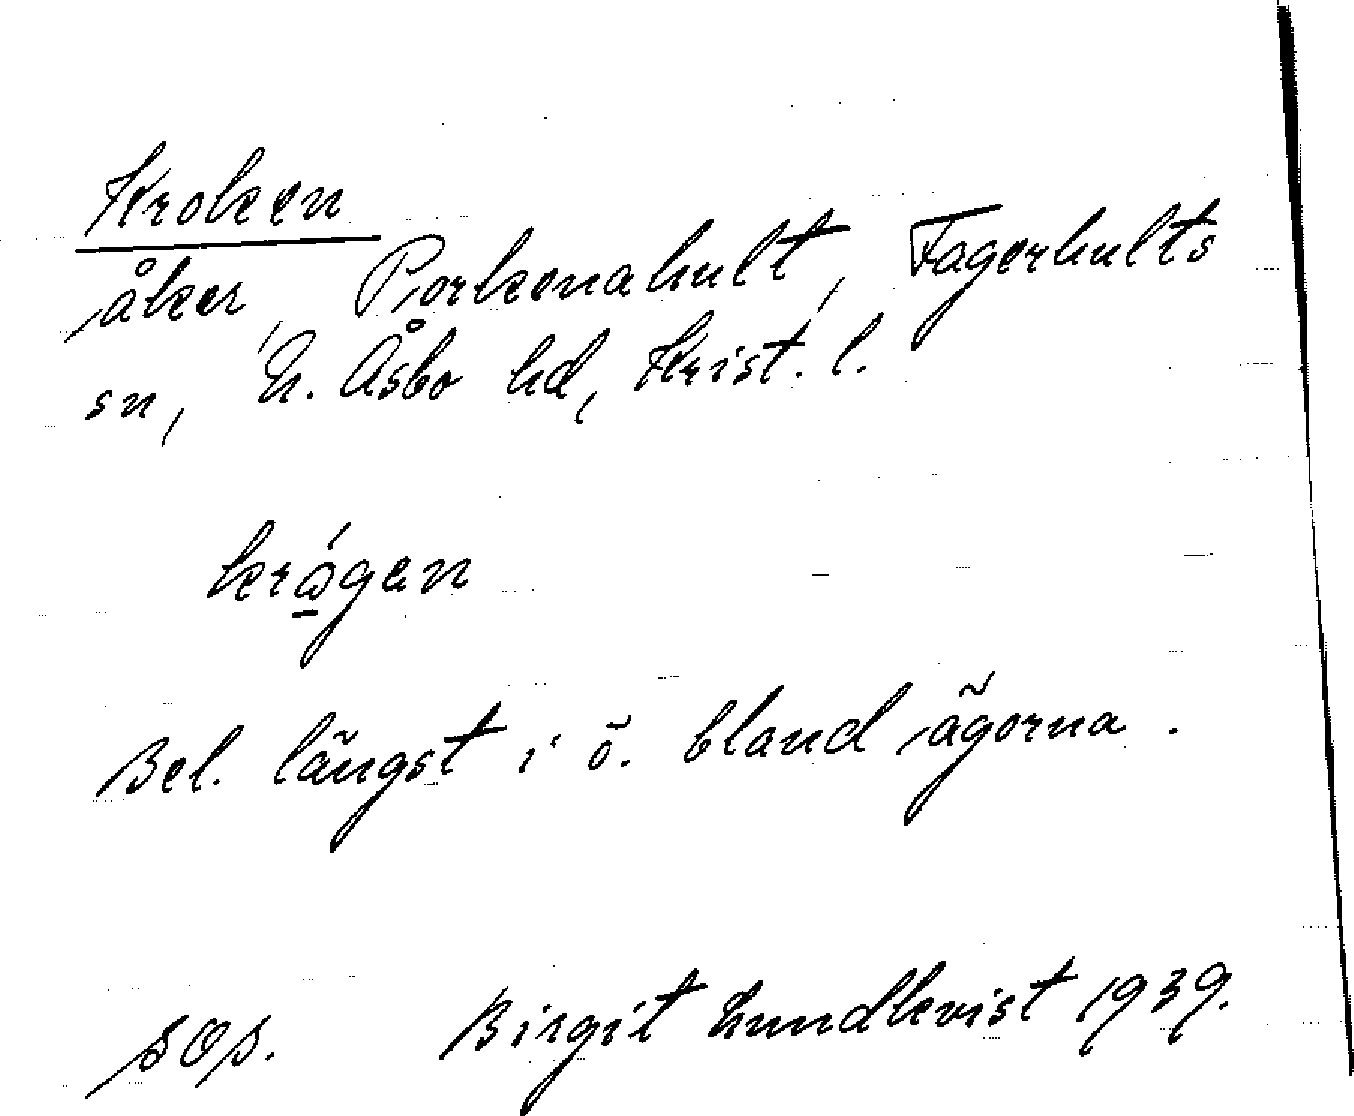 Kroken
åker, Porkenahult, Fagerhults
sn, N. Åsbo hd, Krist. l.
krågen
Bel. längst i ö. bland ägorna.
SOS. Birgit Lundkvist 1939.